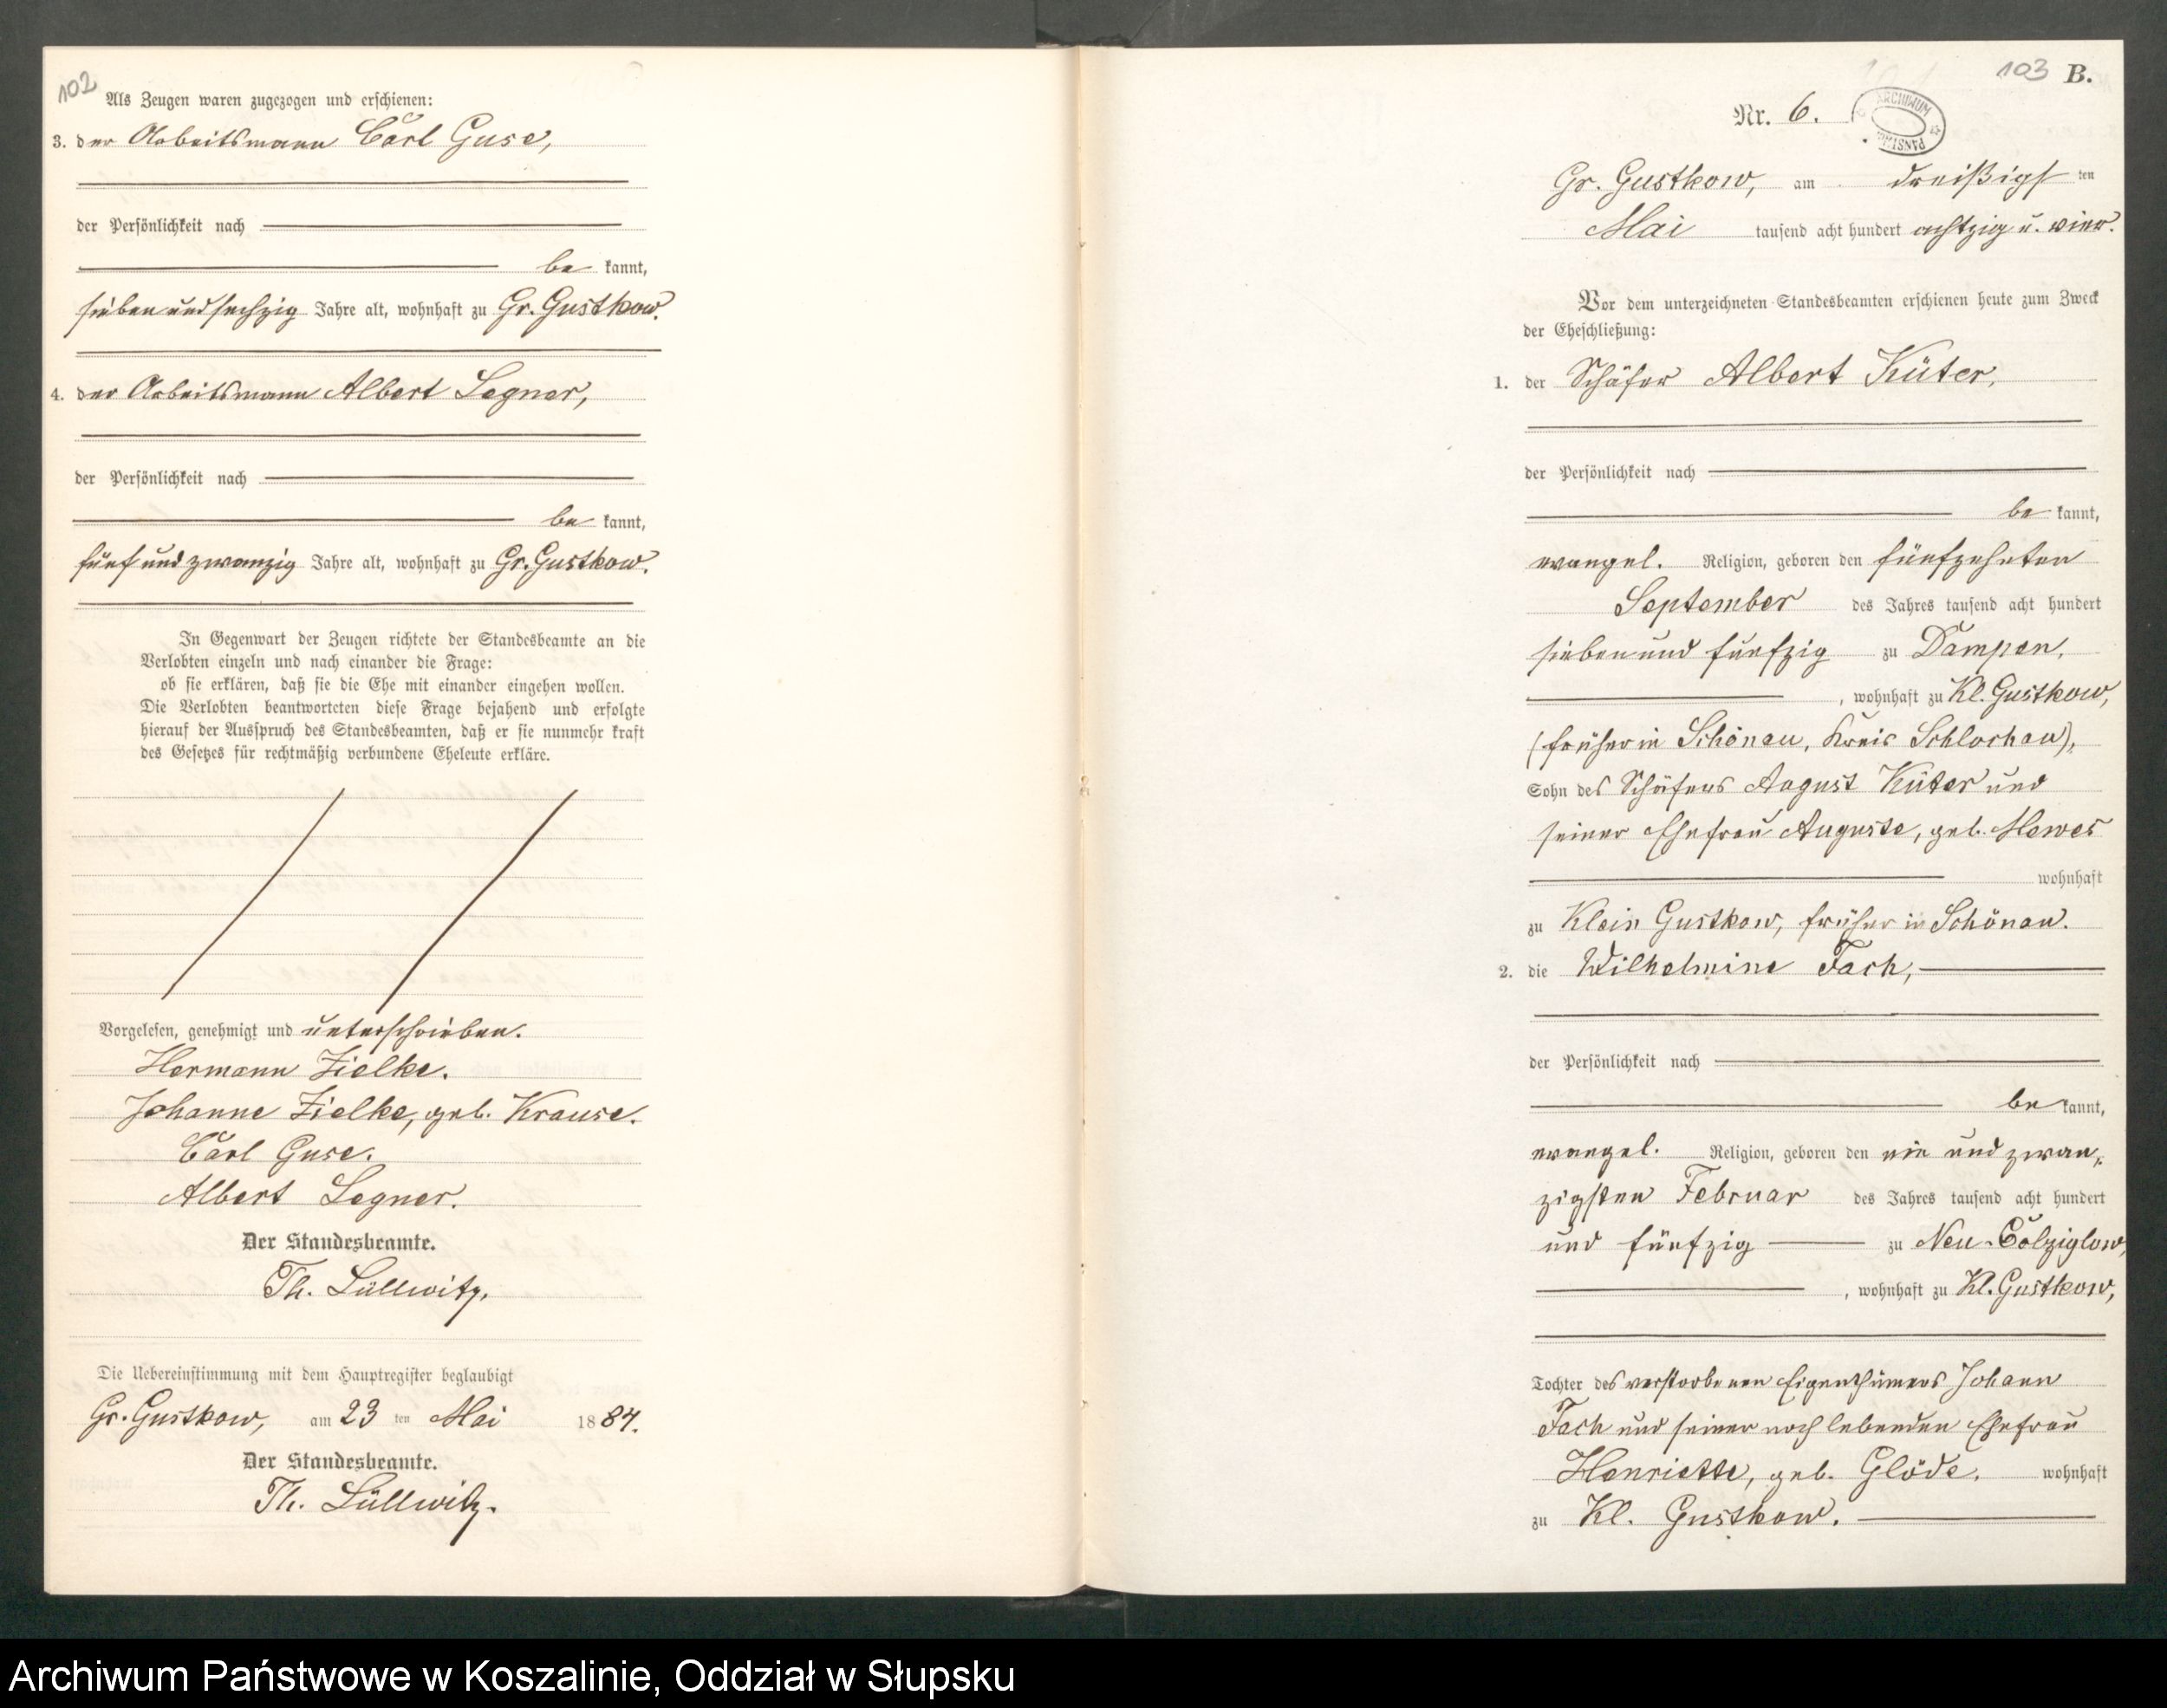 102
Als Zeugen waren zugezogen und erschienen:
3. der Arbeitsmann Carl Guse,
der Persönlichkeit nach
be kannt,
sieben und sechzig Jahre alt, wohnhaft zu Gr. Gustkow.
4. der Arbeitsmann Albert Legner,
der Persönlichkeit nach
be kannt,
fünf und zwanzig Jahre alt, wohnhaft zu Gr. Gustkow.
In Gegenwart der Zeugen richtete der Standesbeamte an die
Verlobten einzeln und nach einander die Frage:
ob sie erklären, daß sie die Ehe mit einander eingehen wollen.
Die Verlobten beantworteten diese Frage bejahend und erfolgte
hierauf der Ausspruch des Standesbeamten, daß er sie nunmehr kraft
des Gesetzes für rechtmäßig verbundene Eheleute erkläre.
Vorgelesen, genehmigt und unterschrieben.
Hermann Zielke.
Johanne Zielke, geb. Krause.
Carl Guse.
Albert Legner.
Der Standesbeamte.
Th. Lüllwitz.
Die Uebereinstimmung mit dem Hauptregister beglaubigt
Gr. Gustkow, am 23 ten Mai 1884.
Der Standesbeamte.
Th. Lüllwitz.
103 B.
Nr. 6.
ARCHIWUM PAŃSTW.
Gr. Gustkow, am dreißigs ten
Mai tausend acht hundert achtzig u. vier.
Vor dem unterzeichneten Standesbeamten erschienen heute zum Zweck
der Eheschließung:
1. der Schäfer Albert Küter,
der Persönlichkeit nach
be kannt,
evangel. Religion, geboren den fünfzehnten
September des Jahres tausend acht hundert
sieben und fünfzig zu Dampen,
, wohnhaft zu Kl. Gustkow,
(früher in Schönau, Kreis Schlochau),
Sohn des Schäfers August Küter und
seiner Ehefrau Auguste, geb. Mewes
wohnhaft
zu Klein Gustkow, früher in Schönau.
2. die Wilhelmine Fach,
der Persönlichkeit nach
be kannt,
evangel. Religion, geboren den ein und zwan-
zigsten Februar des Jahres tausend acht hundert
und fünfzig zu Neu-Colziglow,
, wohnhaft zu Kl. Gustkow,
Tochter des verstorbenen Eigenthümers Johann
Fach und seiner noch lebenden Ehefrau
Henriette, geb. Glöde. wohnhaft
zu Kl. Gustkow.
Archiwum Państwowe w Koszalinie, Oddział w Słupsku